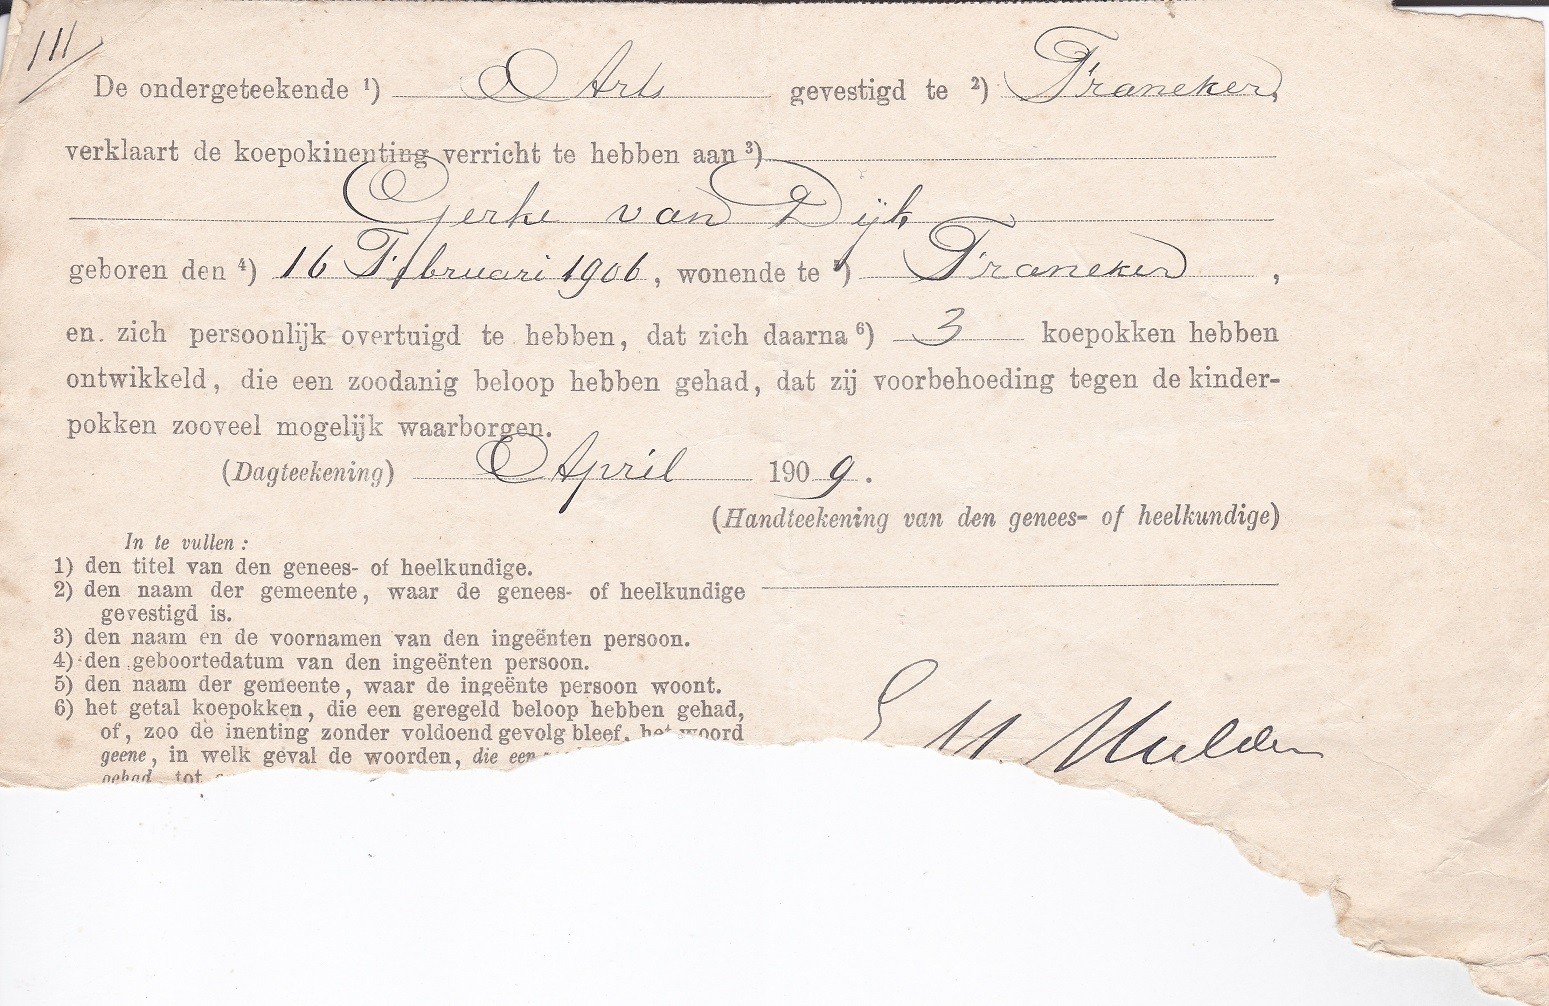 111
De ondergeteekende ¹) Arts gevestigd te ²) Franeker,
verklaart de koepokinenting verricht te hebben aan ³)
Gerke van Dijk
geboren den ⁴) 16 Februari 1906, wonende te ⁵) Franeker,
en zich persoonlijk overtuigd te hebben, dat zich daarna ⁶) 3 koepokken hebben
ontwikkeld, die een zoodanig beloop hebben gehad, dat zij voorbehoeding tegen de kinder-
pokken zooveel mogelijk waarborgen.
(Dagteekening) April 1909.
(Handteekening van den genees- of heelkundige)
In te vullen:
1) den titel van den genees- of heelkundige.
2) den naam der gemeente, waar de genees- of heelkundige
gevestigd is.
3) den naam en de voornamen van den ingeënten persoon.
4) den geboortedatum van den ingeënten persoon.
5) den naam der gemeente, waar de ingeënte persoon woont.
6) het getal koepokken, die een geregeld beloop hebben gehad,
of, zoo de inenting zonder voldoend gevolg bleef, het woord
geene, in welk geval de woorden, die een
gehad tot
Mulder